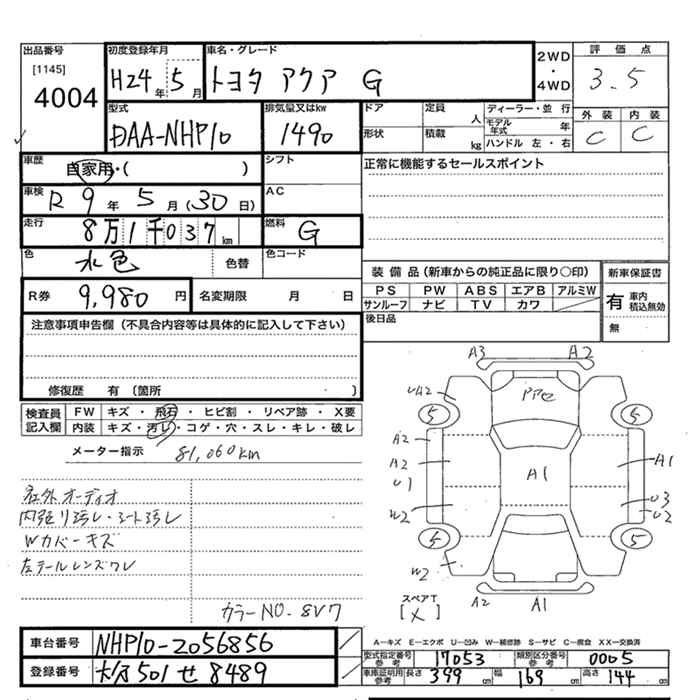 出品番号
[1145]
4004
初度登録年月
H24年 5月
車名・グレード
トヨタ アクア G
2WD
・
4WD
評価点
3.5
型式
DAA-NHP10
排気量又はkw
1490
ドア
定員
人
ディーラー・並行
形状
積載
kg
モデル年式
年
ハンドル 左・右
外装
内装
C
C
車歴
自家用・( )
シフト
正常に機能するセールスポイント
車検
R 9年 5月(30日)
AC
走行
8万1千037km
燃料
G
色
水色
色替
色コード
R券
9,980円
名変期限 月 日
装備品(新車からの純正品に限り○印)
PS
PW
ABS
エアB
アルミW
サンルーフ
ナビ
TV
カワ
後日品
新車保証書
有
車内
積込無効
無
注意事項申告欄(不具合内容等は具体的に記入して下さい)
修復歴 有(箇所 )
検査員
記入欄
FW
キズ・飛石・ヒビ割・リペア跡・X要
内装
キズ・汚レ・コゲ・穴・スレ・キレ・破レ
メーター指示 81,060km
社外オーディオ
内張り汚レ・シート汚レ
Wカバーキズ
左テールレンズワレ
カラーNO.8V7
A3
A2
UA2
アアセ
5
5
A2
A2
U1
A1
A1
W2
U3
U2
5
5
W2
A2
A1
スペアT
[X]
A−キズ E−エクボ U−凹み W−補修跡 S−サビ C−腐食 XX−交換済
車台番号
NHP10-2056856
登録番号
501 せ 8489
型式指定番号
参考
17053
類別区分番号
参考
0005
車庫証明用
参考
長さ 399cm
幅 169cm
高さ 144cm